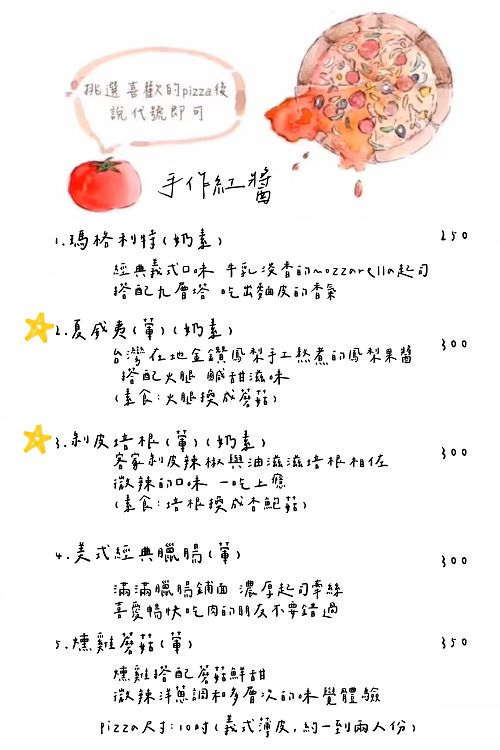 挑選喜歡的pizza後
說代號即可
手作紅醬
1.瑪格利特(奶素) 250
經典義式口味 牛乳淡香的mozzarella起司
搭配九層塔 吃出麵皮的香氣
2.夏威夷(葷)(奶素) 300
台灣在地金鑽鳳梨手工熬煮的鳳梨果醬
搭配火腿 鹹甜滋味
(素食:火腿換成蘑菇)
3.剝皮培根(葷)(奶素) 300
客家剝皮辣椒與油滋滋培根相佐
微辣的口味 一吃上癮
(素食:培根換成杏鮑菇)
4.美式經典臘腸(葷) 300
滿滿臘腸鋪面 濃厚起司牽絲
喜愛暢快吃肉的朋友不要錯過
5.燻雞蘑菇(葷) 350
燻雞搭配蘑菇鮮甜
微辣洋蔥調和多層次的味覺體驗
pizza尺寸:10吋(義式薄皮,約一到兩人份)